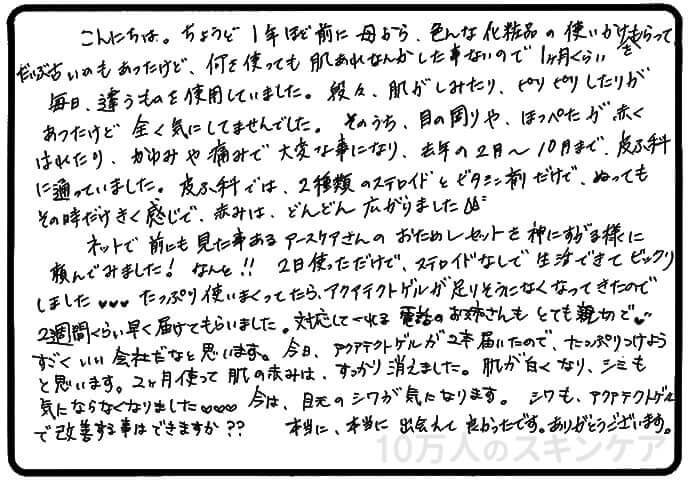 こんにちは。ちょうど1年ほど前に母から、色んな化粧品の使いかけをもらって
だいぶ古いのもあったけど、何を使っても肌あれなんかした事ないので1ヶ月くらい
毎日、違うものを使用していました。段々、肌がしみたり、ピリピリしたりが
あったけど全く気にしてませんでした。そのうち、目の周りや、ほっぺたが赤く
はれたり、かゆみや痛みで大変な事になり、去年の2月〜10月まで、皮ふ科
に通っていました。皮ふ科では、2種類のステロイドとビタミン剤だけで、ぬっても
その時だけきく感じで、赤みは、どんどん広がりました
ネットで前にも見た事あるアースケアさんのおためしセットを神にすがる様に
頼んでみました！なんと！！2日使っただけで、ステロイドなしで生活できてビックリ
しました♥♥♥たっぷり使いまくってたら、アクアテクトゲルが足りそうになくなってきたので
2週間くらい早く届けてもらいました。対応してくれる電話のお姉さんもとても親切で♥
すごくいい会社だなと思います。今日、アクアテクトゲルが2本届いたので、たっぷりつけよう
と思います。2ヶ月使って肌の赤みは、すっかり消えました。肌が白くなり、シミも
気にならなくなりました♡♡♡今は、目元のシワが気になります。シワも、アクアテクトゲル
で改善する事はできますか？？ 本当に、本当に出会えて良かったです。ありがとうございます。
10万人のスキンケア